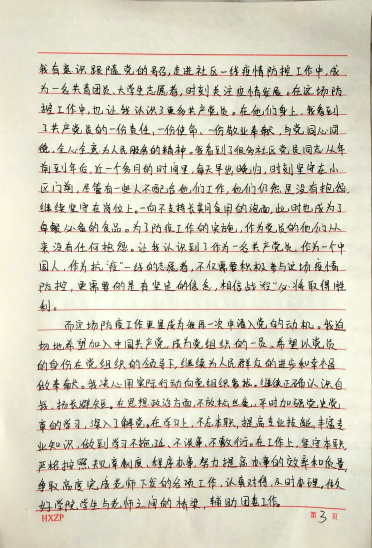 我有意识跟随党的号召,走进社区一线疫情防控工作中,成
为一名共青团员、大学生志愿者,时刻关注疫情发展。在这场防
控工作中,也让我认识了更多共产党员。在他们身上,我看到
了共产党员的一份责任,一份使命、一份敬业奉献,与党同心同
德,全心全意为人民服务的精神。我看到了很多社区党员同志从年
前到年后,近一个多月的时间里,每天早出晚归,时刻坚守在小
区门前,尽管有一些人不配合他们工作,他们仍然是没有抱怨,
继续坚守在岗位上。一向不支持长期食用的泡面,此时也成为了
每餐必备的食品。为了防疫工作的实施,作为党员的他们从
来没有任何抱怨。让我认识到了作为一名共产党员,作为一个中
国人,作为抗“疫”一线的志愿者,不仅需要积极参与这场疫情
防控,更需要的是有坚定的信念,相信战“疫”必将取得胜
利。
而这场防疫工作更是成为我再一次申请入党的动机。我迫
切地希望加入中国共产党,成为党组织的一员。希望以党员
的身份在党组织的领导下,继续为人民群众的进步和幸福
做奉献。我决心用实际行动向党组织看拢。继续正确认识自
我,扬长避短。在思想政治方面,不放松丝毫,平时加强党史党
章的学习,深入了解党。在学习上,不忘本职,提高专业技能,丰富专
业知识,做到学习不拖延,不误事,不敷衍。在工作上,坚守本职,
严格按照规章制度、程序办事,努力提高办事的效率和质量,
争取高度完成老师下发的各项工作,认真对待,及时办理。做
好学院、学生与老师之间的桥梁,辅助团委工作。
HXZP
第 3 页